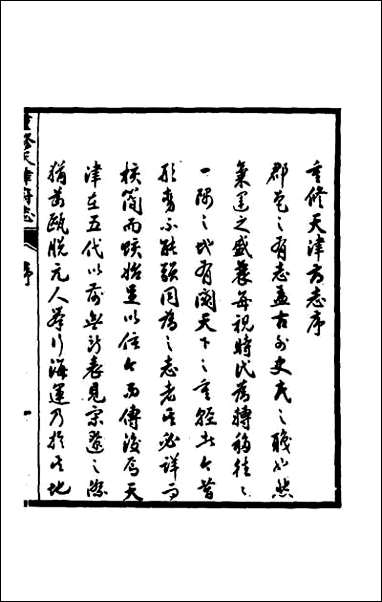 重修天津府志序
郡邑之有志蓋古外史氏之職也然
氣運之盛衰每視時代為轉移往往
一隅之地有關天下之重輕此今昔
形勢不能強同為之志者必詳而
核簡而賅始足以信今而傳後焉天
津在五代以前無所表見宋遼之際
猶為甌脫元人舉行海運乃於其地
重修天津府志
序
一